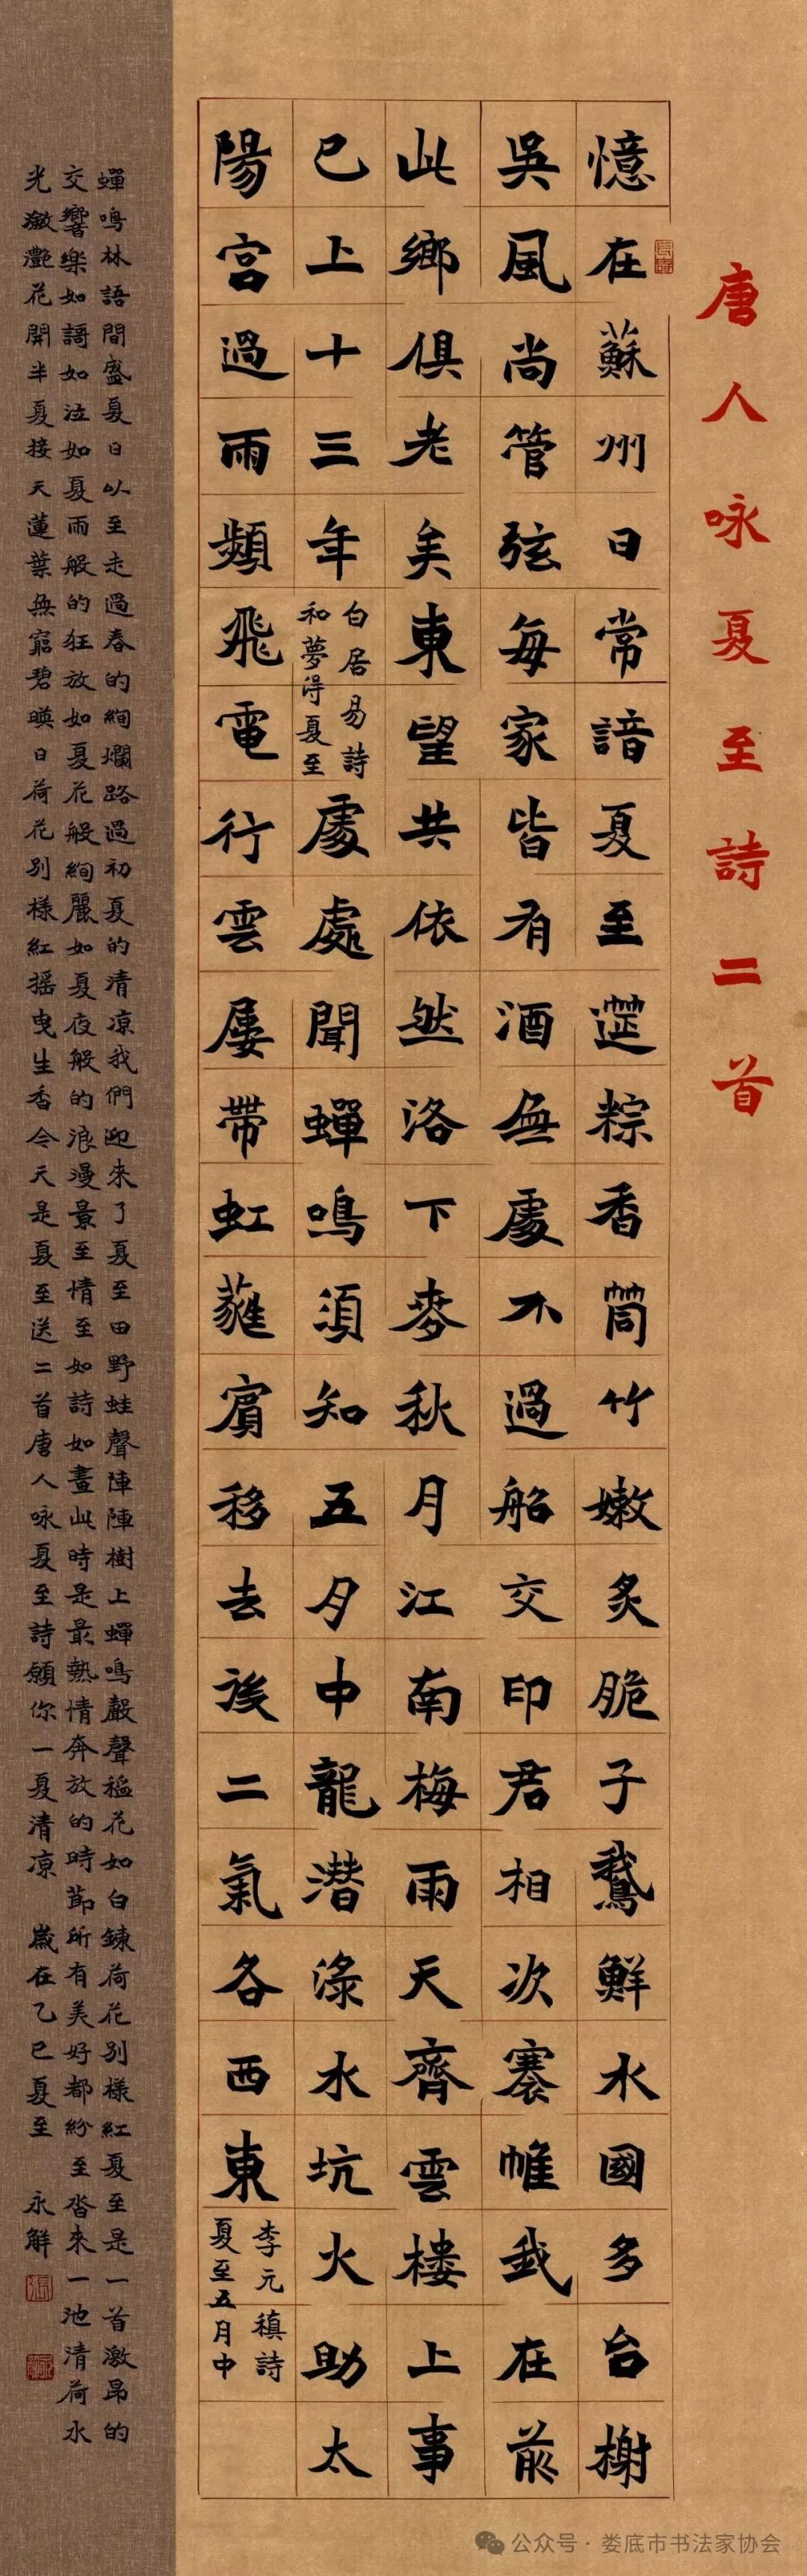 唐人咏夏至詩二首
憶在蘇州日常諳夏至筵粽香筒竹嫩炙脆子鵝鮮水國多台榭
吳風尚管弦每家皆有酒無處不過船交印君相次褰帷我在前
此鄉俱老矣東望共依然洛下麥秋月江南梅雨天齊雲楼上事
已上十三年
白居易詩
和夢得夏至
處處聞蟬鳴須知五月中龍潛淥水坑火助太
陽宮過雨頻飛電行雲屢帶虹蕤賓移去後二氣各西東
李元稹詩
夏至五月中
蟬鳴林語間盛夏日以至走過春的絢爛路過初夏的清凉我們迎來了夏至田野蛙聲陣陣樹上蟬鳴嚴聲花如白鍊荷花別樣紅夏至是一首激昂的
交響樂如謌如泣如夏雨般的狂放如夏花般絢麗如夏夜般的浪漫景至情至如詩如畫此時是最熱情奔放的時節所有美好都紛至沓來一池清荷水
光潋灧花開半夏接天蓮葉無窮碧暎日荷花別樣紅摇曳生香今天是夏至送二首唐人咏夏至詩願你一夏清凉 歲在乙巳夏至 永解
公众号·娄底市书法家协会